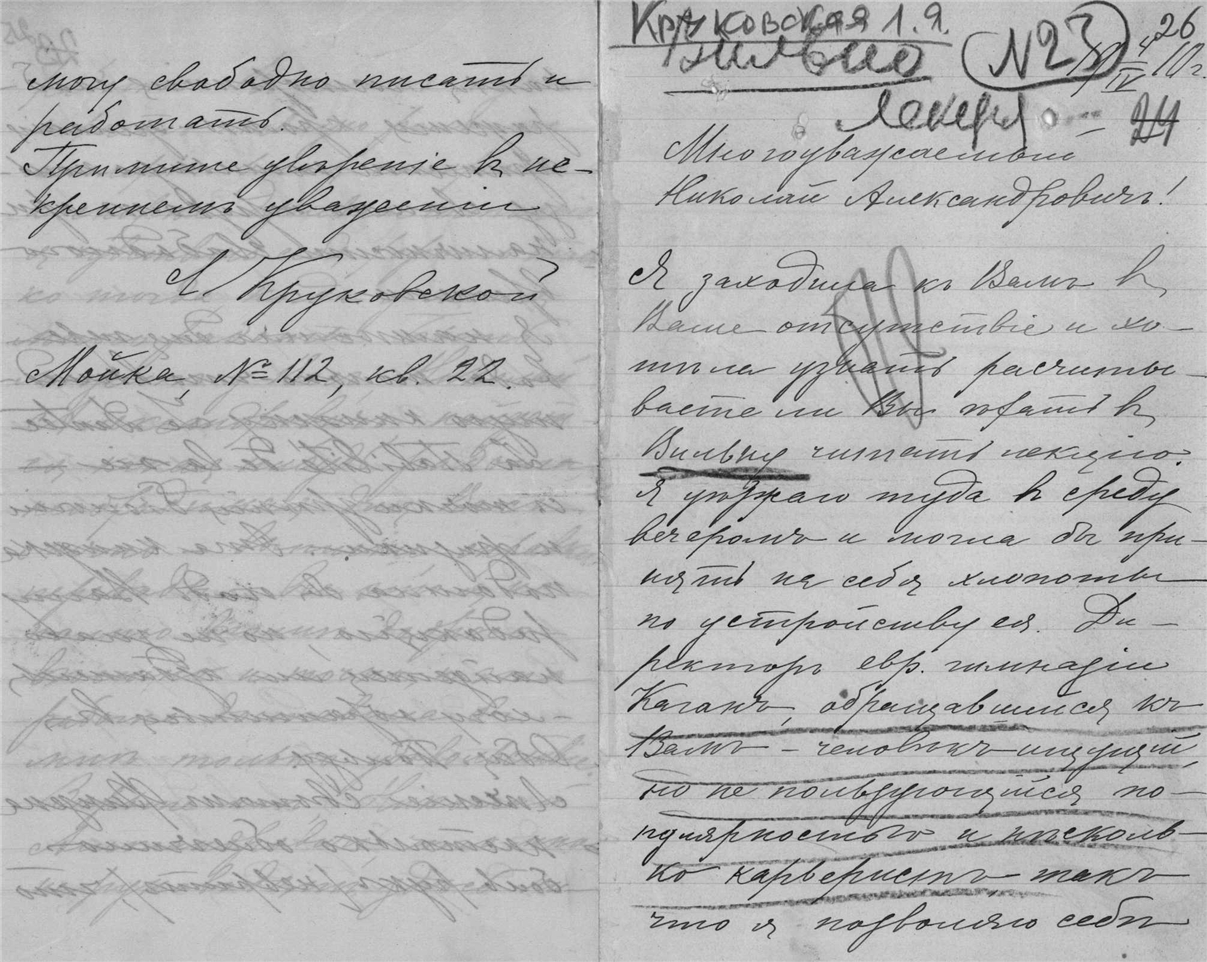 могу свободно писать и
работать.
Примите увѣреніе в ис-
креннемъ уваженіи
Л Круковской
Мойка, № 112, кв. 22.
Круковская Л. Я.
Вильно
№ 23
26
4
IV 10 г.
24
Многоуважаемый
Николай Александровичъ!
Я заходила къ Вамъ в
Ваше отсутствіе и хо-
тѣла узнать расчиты-
ваете ли Вы ѣхать в
Вильну читать лекцію.
Я уѣзжаю туда в среду
вечеромъ и могла бы при-
нять на себя хлопоты
по устройству ея. Ди-
ректоръ евр. гимназіи
Каганъ, обращавшийся къ
Вамъ – человѣкъ идущій,
но не пользующійся по-
пулярностью и нѣсколь-
ко карьеристъ – такъ
что я позволяю себѣ